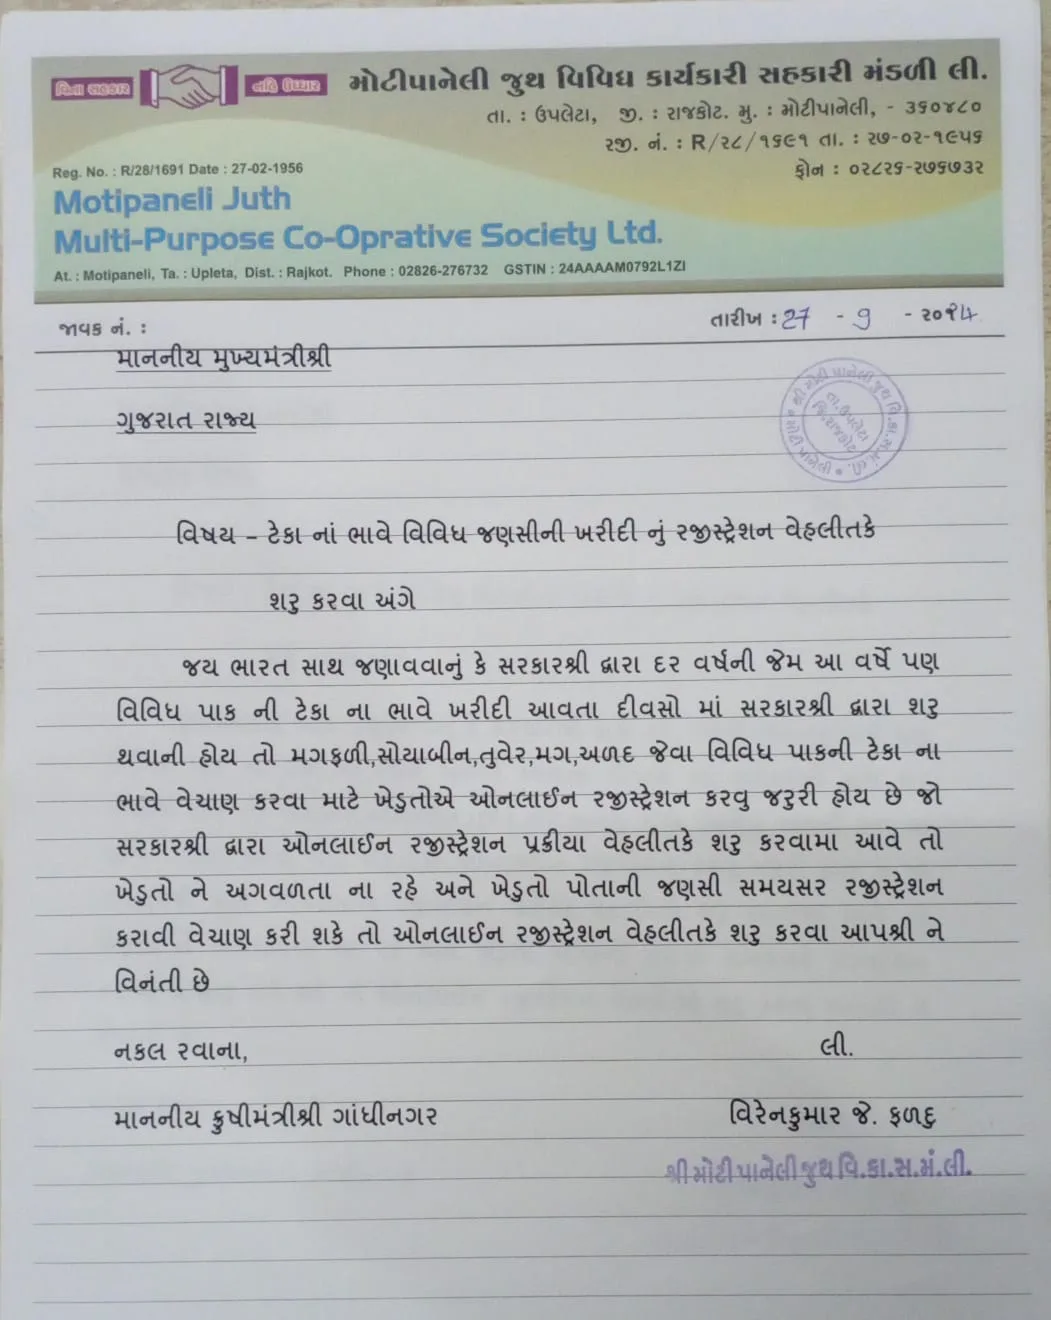 વિના સહકાર
નહિ ઉધ્ધાર
મોટીપાનેલી જુથ વિવિધ કાર્યકારી સહકારી મંડળી લી.
તા. : ઉપલેટા, જી. : રાજકોટ. મુ. : મોટીપાનેલી, - ૩૬૦૪૮૦
રજી. નં. : R/૨૮/૧૬૯૧ તા. : ૨૭-૦૨-૧૯૫૬
ફોન : ૦૨૮૨૬-૨૭૬૭૩૨
Reg. No. : R/28/1691 Date : 27-02-1956
Motipaneli Juth
Multi-Purpose Co-Oprative Society Ltd.
At. : Motipaneli, Ta. : Upleta, Dist. : Rajkot. Phone : 02826-276732 GSTIN : 24AAAAM0792L1ZI
જાવક નં. :
તારીખ : 27 - 9 - ૨૦૨૪
માનનીય મુખ્યમંત્રીશ્રી
ગુજરાત રાજ્ય
શ્રી મોટી પાનેલી જુથ વિ.કા.સ.મં.લી.
તા.ઉપલેટા
જિ.રાજકોટ
વિષય – ટેકા નાં ભાવે વિવિધ જણસીની ખરીદી નું રજીસ્ટ્રેશન વેહલીતકે
શરુ કરવા અંગે
જય ભારત સાથ જણાવવાનું કે સરકારશ્રી દ્વારા દર વર્ષની જેમ આ વર્ષે પણ
વિવિધ પાક ની ટેકા ના ભાવે ખરીદી આવતા દીવસો માં સરકારશ્રી દ્વારા શરુ
થવાની હોય તો મગફળી,સોયાબીન,તુવેર,મગ,અળદ જેવા વિવિધ પાકની ટેકા ના
ભાવે વેચાણ કરવા માટે ખેડુતોએ ઓનલાઈન રજીસ્ટ્રેશન કરવુ જરુરી હોય છે જો
સરકારશ્રી દ્વારા ઓનલાઈન રજીસ્ટ્રેશન પ્રકીયા વેહલીતકે શરુ કરવામા આવે તો
ખેડુતો ને અગવળતા ના રહે અને ખેડુતો પોતાની જણસી સમયસર રજીસ્ટ્રેશન
કરાવી વેચાણ કરી શકે તો ઓનલાઈન રજીસ્ટ્રેશન વેહલીતકે શરુ કરવા આપશ્રી ને
વિનંતી છે
નકલ રવાના,
લી.
માનનીય કૃષીમંત્રીશ્રી ગાંધીનગર
વિરેનકુમાર જે. ફળદુ
શ્રી મોટી પાનેલી જુથ વિ.કા.સ.મં.લી.